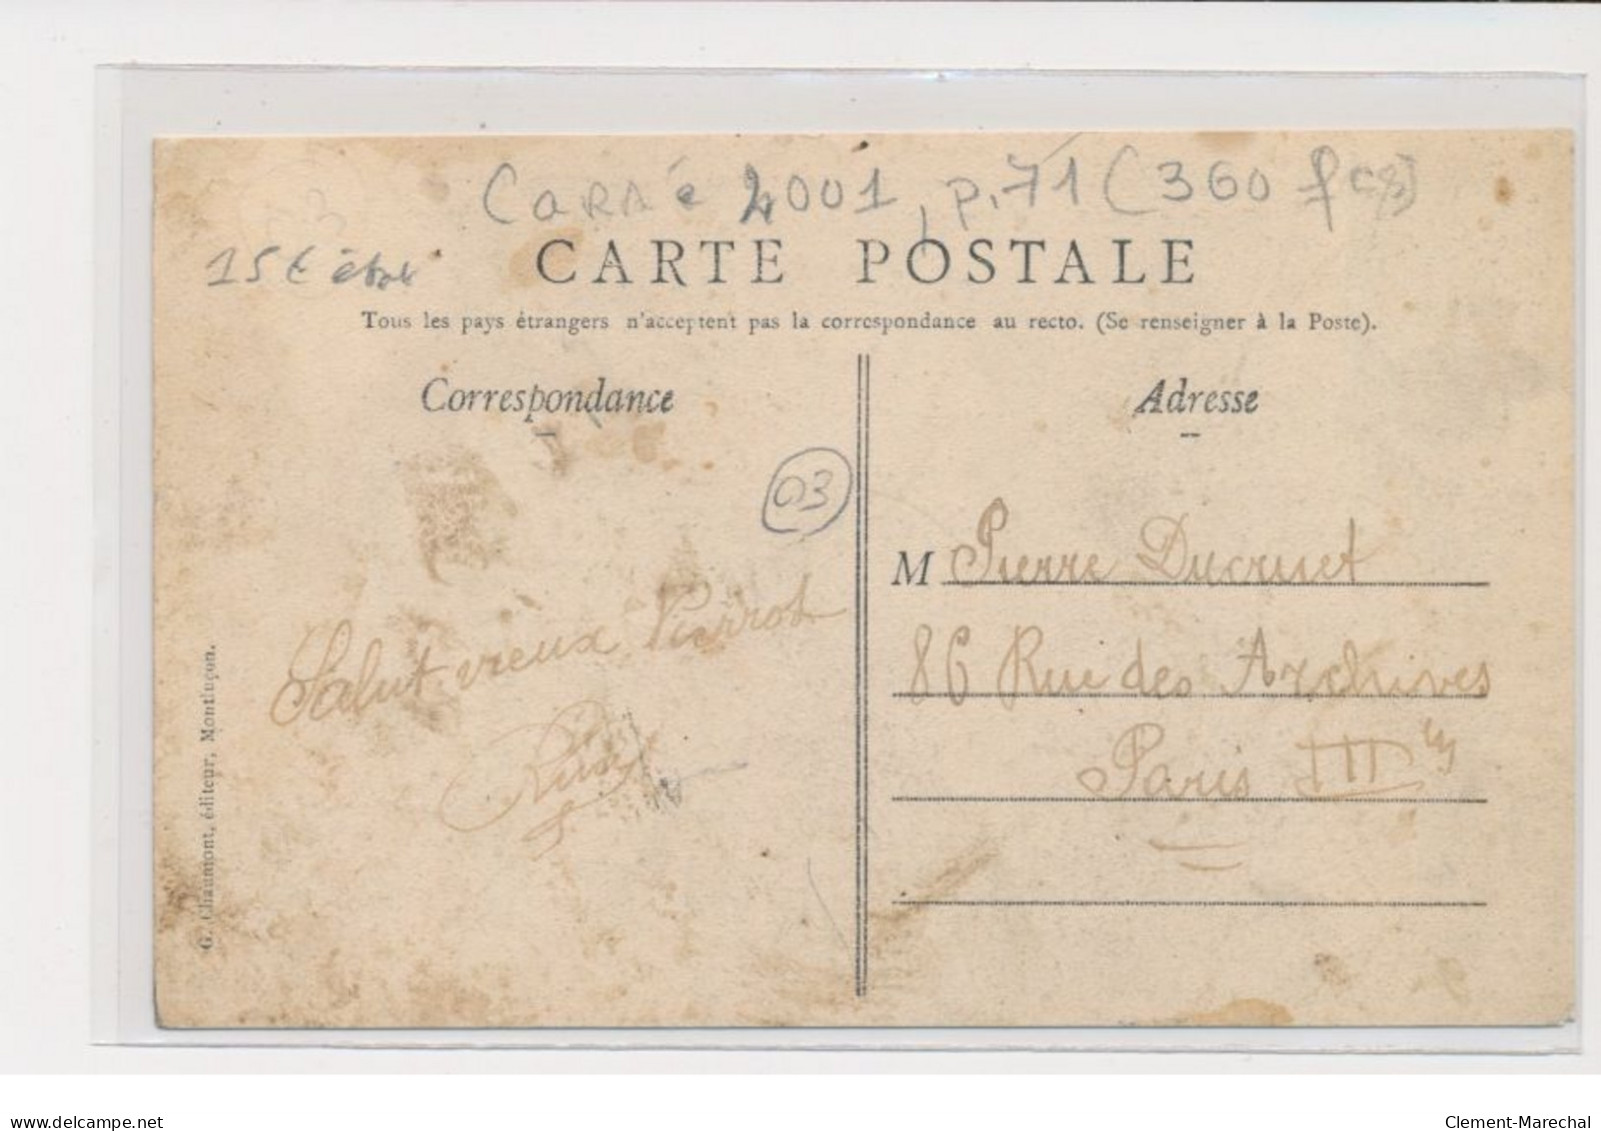 CARRé 2001, p.71 (360 fcs)
15 €
CARTE POSTALE
Tous les pays étrangers n'acceptent pas la correspondance au recto. (Se renseigner à la Poste).
Correspondance
03
Salut vieux Pierrot
G. Chaumont, éditeur, Montluçon.
Adresse
M Pierre Ducruet
86 Rue des Archives
Paris III
www.delcampe.net
Clement-Marechal